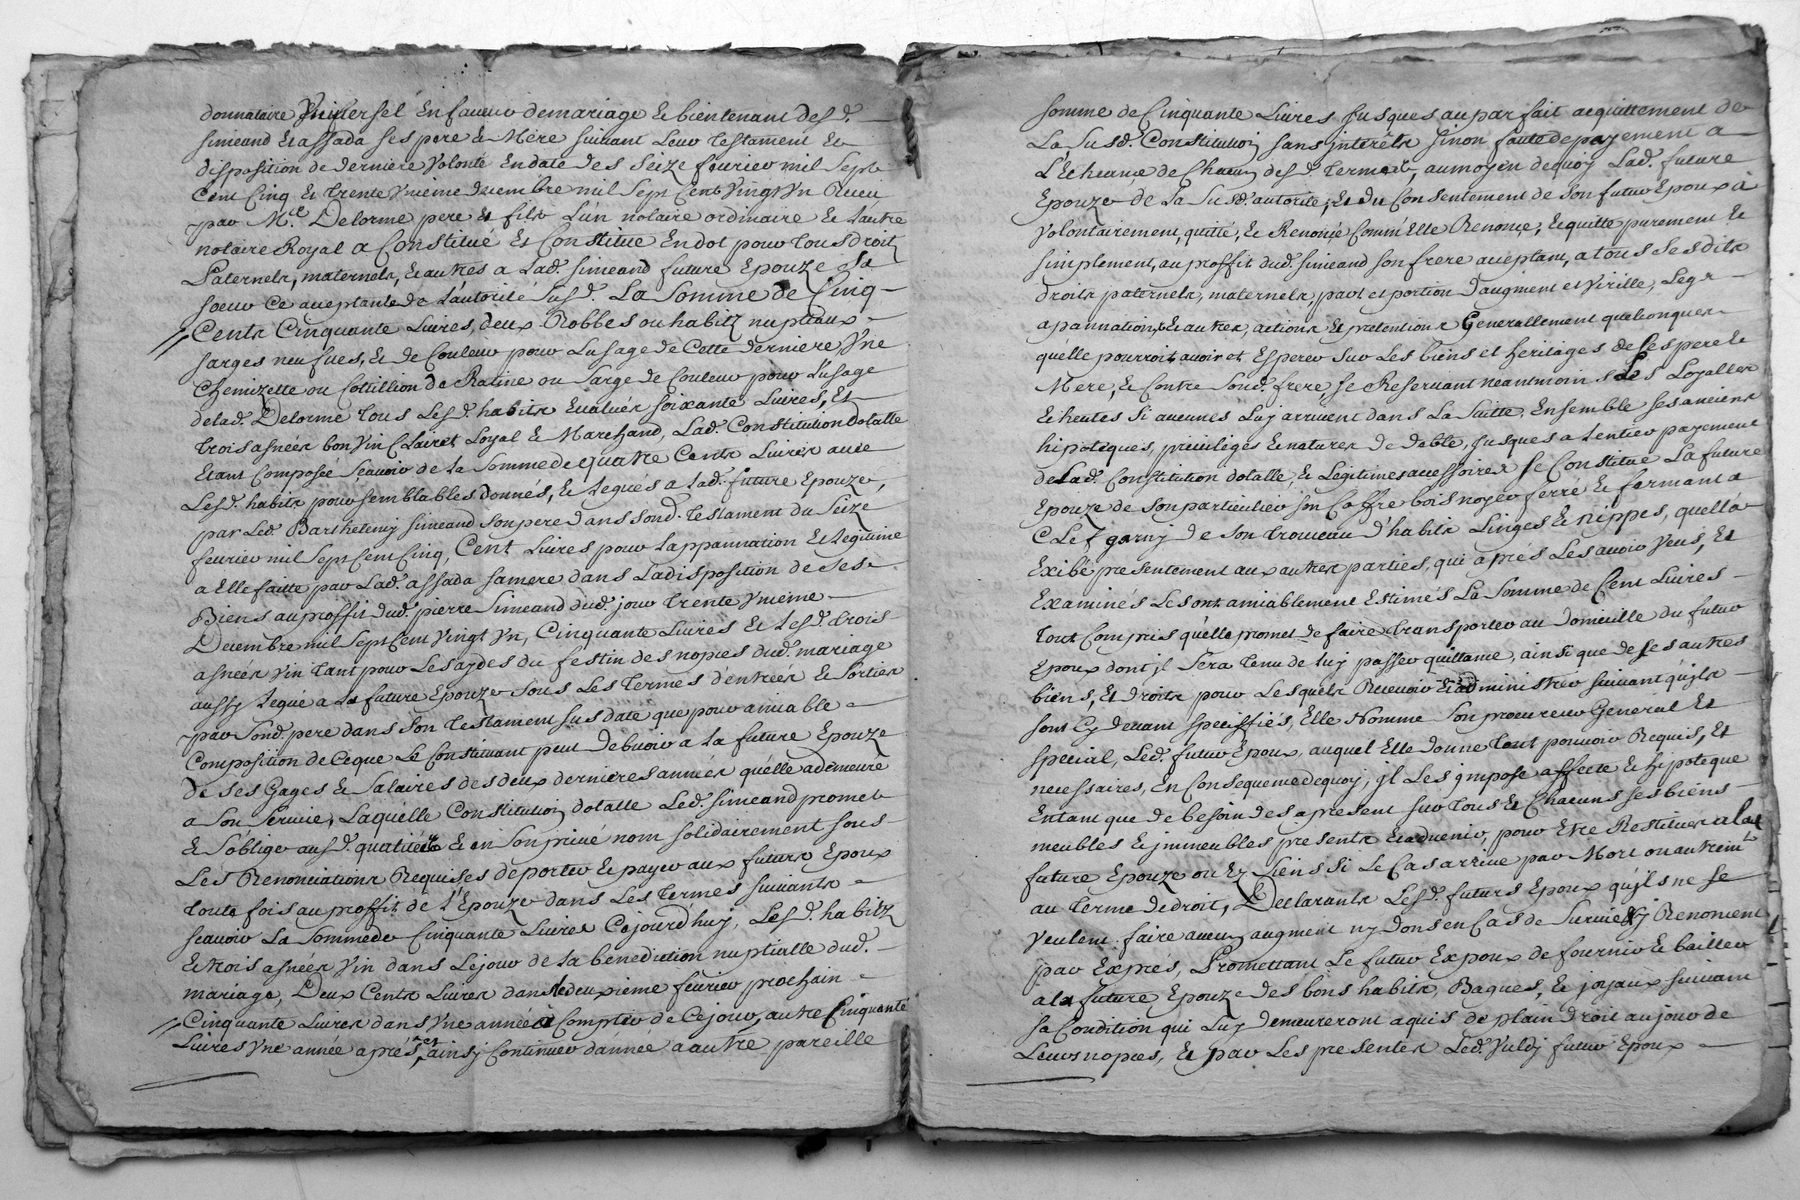 donnataire Universel En faveur de mariage & bientenant desd.
simeand Et assada ses pere & Mere suivant Leur Testament Et
disposition de derniere Volonté En date des seize fevrier mil Sept
Cent Cinq & trente Unieme decembre mil Sept Cent Vingt Vn Receu
par M.e Delorme pere & fils L'un notaire ordinaire & Lautre
notaire Royal a Constitué Et Constitue En dot pour tous droitz
Paternels, maternels, & autres a Lad. Simeand future Epouze Sa
soeur Ce aceptante de L'autorité Susd. La Somme de Cinq
Cents Cinquante Livres, deux Robbes ou habitz nuptiaux
sarges neufves, & de Couleur pour Lusage de Cette derniere, Vne
Chemizette ou Cottillion de Ratine ou Sarge de Couleur pour Lusage
de Lad. Delorme tous Lesd. habits Evalués soixante Livres, Et
trois asnées bon Vin Clairet Loyal & Marchand, Lad. Constitution dotalle
Etant Composée sçavoir de La Somme de quatre Cents Livres avec
Lesd. habits pour semblables donnés, & Legués a Lad. future Epouze,
par Led. Barthelemy Simeand son pere dans sond. Testament du Seize
fevrier mil Sept Cent Cinq, Cent Livres pour Lappannation & Legitime
a Elle faitte par Lad. assada sa mere dans La disposition de Ses
Biens au proffit dud. pierre Simeand dud. jour trente Vnieme
Decembre mil Sept Cent Vingt Vn, Cinquante Livres Et Lesd. trois
asnées Vin tant pour Les aydes du festin des nopces dud. mariage
aussy Legué a La future Epouze Sous Les termes d'entrées & Sorties
par Sond. pere dans Son Testament susdaté que pour amiable
Composition de Ceque Le Constituant peut Debvoir a La future Epouze
De Ses Gages & Salaires des deux dernieres années quelle a demeuré
a Son Service, Laquelle Constitution dotalle Led. Simeand promet
& S'oblige ausd. qualités & en Son privé nom solidairement sous
Les Renonciations Requises de porter & payer aux futurs Epoux
toutefois au proffit de L'Epouze dans Les Termes suivants
scavoir La Somme de Cinquante Livres Cejourdhuy, Lesd. habitz
& trois asnées Vin dans Le jour de La benediction nuptialle dud.
mariage, Deux Cents Livres dans le deuxieme fevrier prochain
Cinquante Livres dans Vne année a Compter de Ce jour, autre Cinquante
Livres Vne année aprés, & ainsy Continuer dannée a autre pareille
somme de Cinquante Livres Jusques au parfait acquittement de
La Susd. Constitution sans interêts Sinon faute de payement a
L'Echeance de Chacun desd. Termes, au moyen dequoy Lad. future
Epouze de La Susd. autorité, Et du Consentement de Son futur Epoux a
Volontairement, quitté, & Renoncé Comm'Elle Renonce, & quitte purement &
simplement, au proffit dud. Simeand son frere aceptant, a tous Sesdits
droits paternels, maternels, part et portion d'augment et Virille, Legs
apannations & autres, actions & pretentions Generallement quelconques
quélle pourroit avoir et Esperer sur Les biens et heritages de Ses pere &
Mere, & Contre Sond. frere, se Reservant neantmoins Les Loyalles
Echeutes Si aucunes Luy arrivent dans La Suitte, Ensemble Ses anciens
hipoteques, privileges & natures de debte, Jusques a Lentier payement
de Lad. Constitution dotalle, & Legitimes accessoires Se Constitue La future
Epouze de Son particulier Son Coffre bois noyer ferré & fermant a
Clef garny de Son trousseau d'habits Linges & nippes, quella
Exibé presentement aux autres parties, qui aprés Les avoir Veus, Et
Examinés Lesont amiablement Estimés La Somme de Cent Livres
tout Compris quélle promet de faire transporter au Domicille du futur
Epoux dont jl Sera tenu de Luy passer quittance, ainsi que de Ses autres
biens, Et droits pour Lesquels Recevoir & administrer suivant qujls
sont Cy devant Speciffiés, Elle Nomme Son procureur General Et
special, Led. futur Epoux, auquel Elle donne tout pouvoir Requis, Et
necessaires, En Consequence dequoy, jl Les jmpose affecte & hipoteque
Entant que de besoin des apresent sur tous & Chacuns Ses biens
meubles & jmmeubles presents & advenir, pour Etre Restitués a Lad
future Epouze ou Es Siens si Le Cas arrive par Mort ou autremt
au terme de droit, Declarants Lesd. futurs Epoux qujls ne Se
Veulent faire aucun augment ny Dons en Cas de Survie & y Renoncent
par Exprés, Promettant Le futur Expoux de fournir & bailler
a La future Epouze des bons habits, Bagues, & joyaux suivant
sa Condition qui Luy Demeureront aquis de plain Droit au jour de
Leurs nopces, Et par Les presentes Led. Vuldy futur Epoux